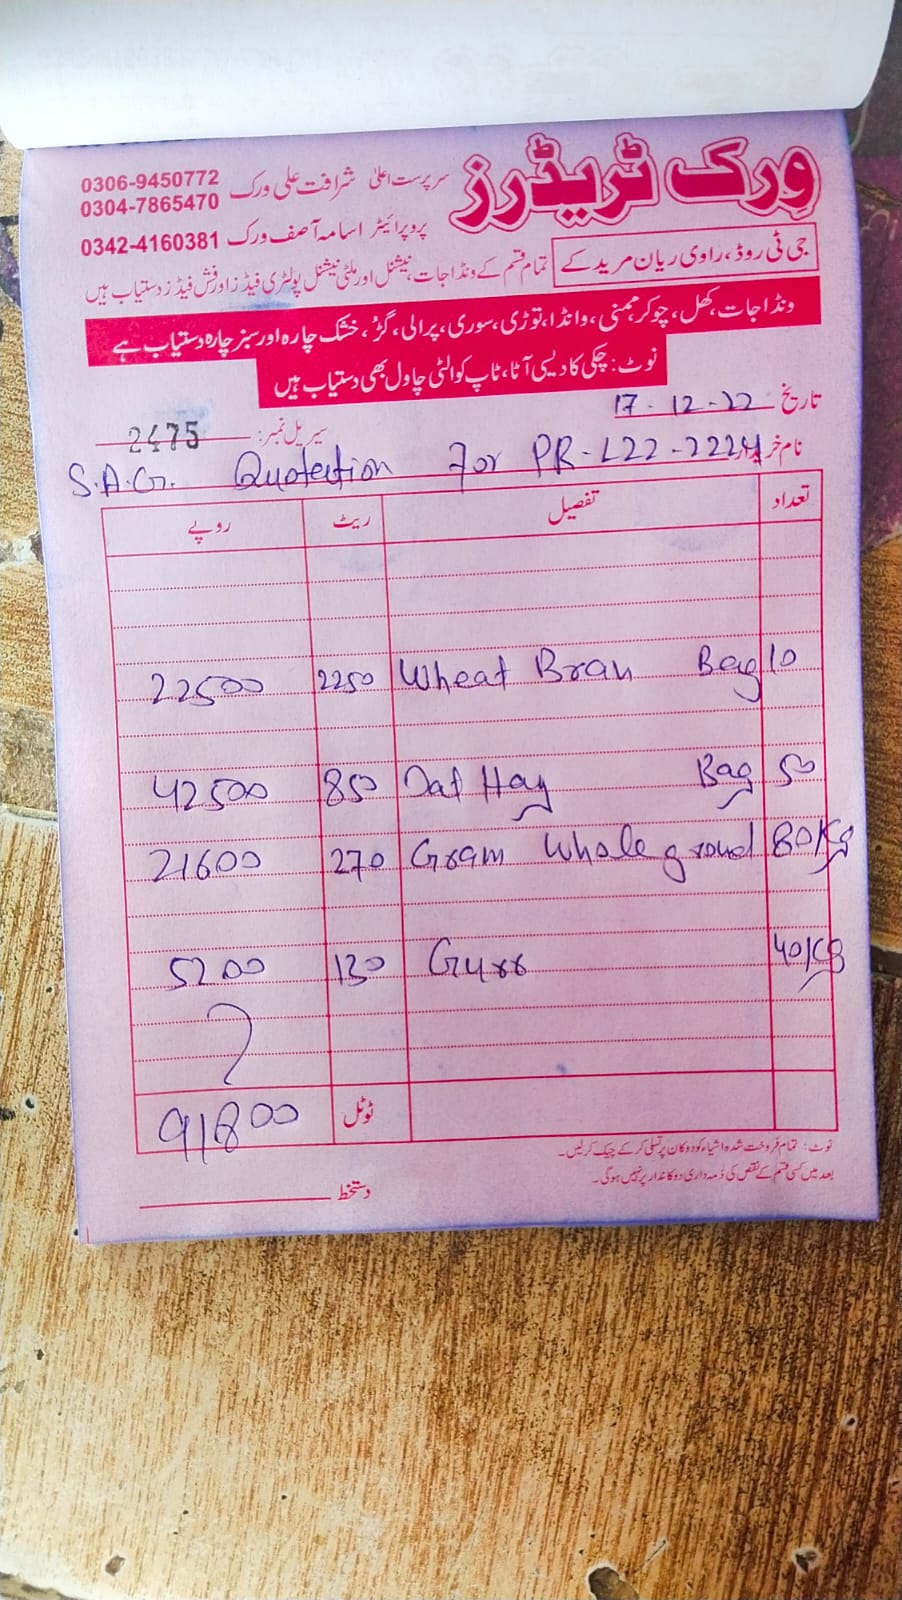 ورک ٹریڈرز
سرپرست اعلیٰ شرافت علی ورک 0306-9450772
0304-7865470
پروپرائیٹر اسامہ آصف ورک 0342-4160381
جی ٹی روڈ، راوی ریان مریدکے
تمام قسم کے ونڈا جات، نیشنل اور ملٹی نیشنل پولٹری فیڈز اور فش فیڈز دستیاب ہیں
ونڈا جات، کھل، چوکر، ممنی، وانڈا، توڑی، سوری، پرالی، گڑ، خشک چارہ اور سبز چارہ دستیاب ہے
نوٹ: چکی کا دیسی آٹا، ٹاپ کوالٹی چاول بھی دستیاب ہیں
تاریخ 17-12-22
سیریل نمبر: 2475
نام خریدار
S.A.G. Quotection For PR-L22-2224
تعداد تفصیل ریٹ روپے
22500 2250 Wheat Bran Bag 10
42500 850 Oat Hay Bag 50
21600 270 Gram Whole ground 80Kg
5200 130 Gurr 40Kg
91800 ٹوٹل
نوٹ: تمام فروخت شدہ اشیاء کو دوکان پر تسلی کر کے چیک کر لیں۔
بعد میں کسی قسم کے نقص کی ذمہ داری دوکاندار پر نہیں ہوگی۔
دستخط